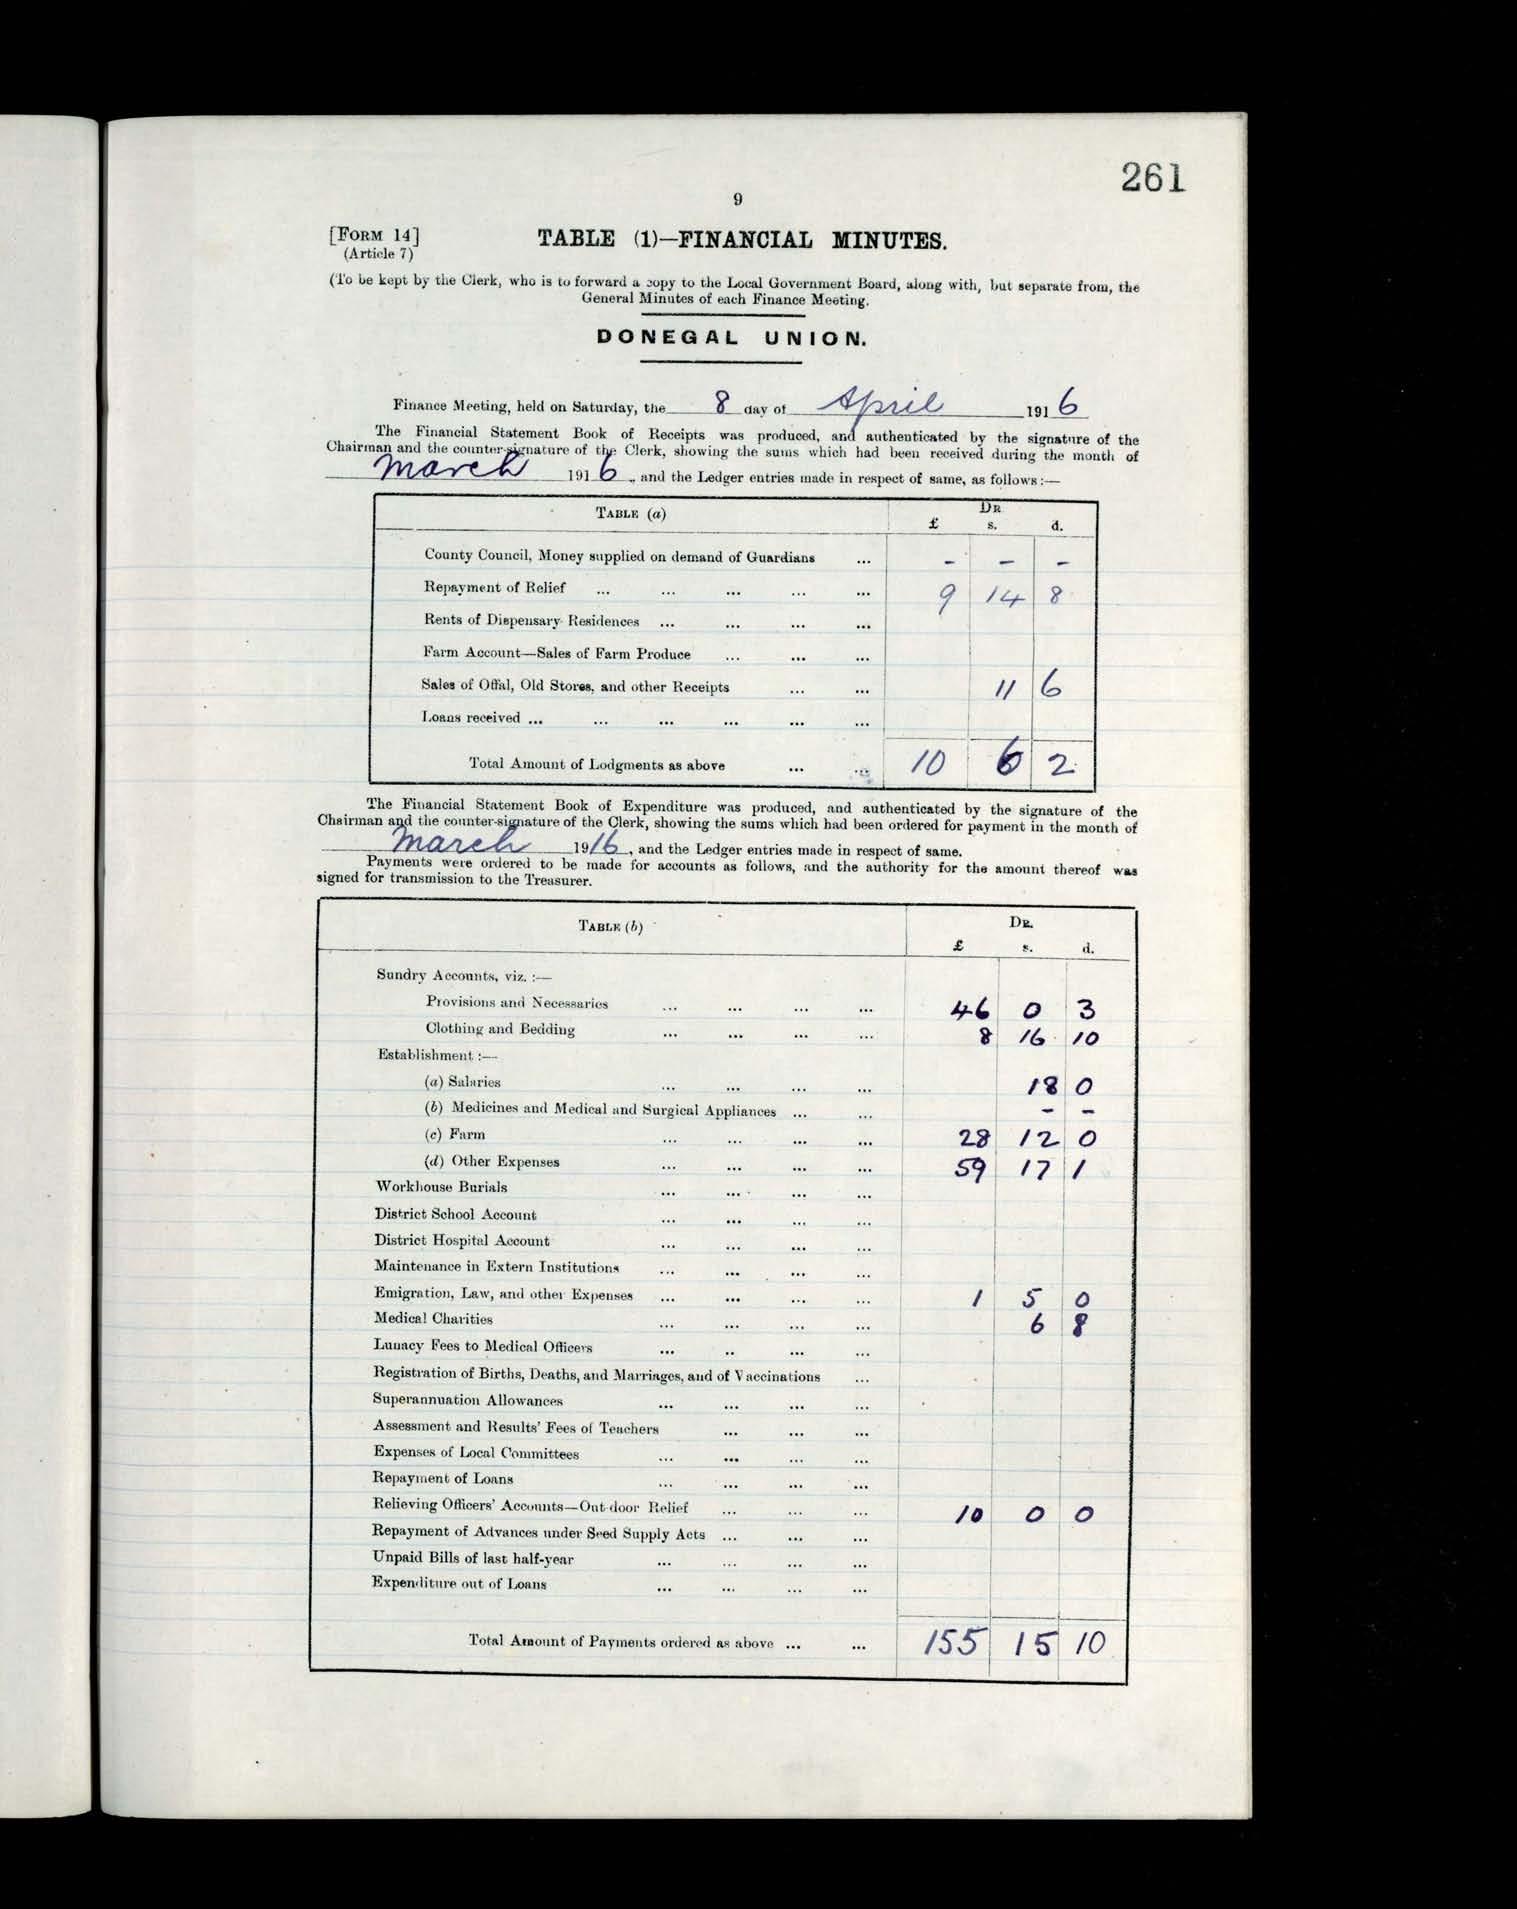 261
9
[FORM 14]
(Article 7)
TABLE (1)—FINANCIAL MINUTES.
(To be kept by the Clerk, who is to forward a copy to the Local Government Board, along with, but separate from, the
General Minutes of each Finance Meeting.
DONEGAL UNION.
Finance Meeting, held on Saturday, the 8 day of April 1916
The Financial Statement Book of Receipts was produced, and authenticated by the signature of the
Chairman and the counter-signature of the Clerk, showing the sums which had been received during the month of
March 1916, and the Ledger entries made in respect of same, as follows:—
TABLE (a) DR
£ s. d.
County Council, Money supplied on demand of Guardians ... – – –
Repayment of Relief ... ... ... ... ... 9 14 8
Rents of Dispensary Residences ... ... ... ...
Farm Account—Sales of Farm Produce ... ... ...
Sales of Offal, Old Stores, and other Receipts ... ... 11 6
Loans received ... ... ... ... ... ...
Total Amount of Lodgments as above ... ... 10 6 2
The Financial Statement Book of Expenditure was produced, and authenticated by the signature of the
Chairman and the counter-signature of the Clerk, showing the sums which had been ordered for payment in the month of
March 1916, and the Ledger entries made in respect of same.
Payments were ordered to be made for accounts as follows, and the authority for the amount thereof was
signed for transmission to the Treasurer.
TABLE (b) DR.
£ s. d.
Sundry Accounts, viz. :—
Provisions and Necessaries ... ... ... ... 46 0 3
Clothing and Bedding ... ... ... ... 8 16 10
Establishment :—
(a) Salaries ... ... ... ... 18 0
(b) Medicines and Medical and Surgical Appliances ... ... – –
(c) Farm ... ... ... ... 28 12 0
(d) Other Expenses ... ... ... ... 59 17 1
Workhouse Burials ... ... ... ...
District School Account ... ... ... ...
District Hospital Account ... ... ... ...
Maintenance in Extern Institutions ... ... ... ...
Emigration, Law, and other Expenses ... ... ... ... 1 5 0
Medical Charities ... ... ... ... 6 8
Lunacy Fees to Medical Officers ... .. ... ...
Registration of Births, Deaths, and Marriages, and of Vaccinations ...
Superannuation Allowances ... ... ... ...
Assessment and Results' Fees of Teachers ... ... ...
Expenses of Local Committees ... ... ... ...
Repayment of Loans ... ... ... ...
Relieving Officers' Accounts—Out-door Relief ... ... ... 10 0 0
Repayment of Advances under Seed Supply Acts ... ... ...
Unpaid Bills of last half-year ... ... ... ...
Expenditure out of Loans ... ... ... ...
Total Amount of Payments ordered as above ... ... 155 15 10